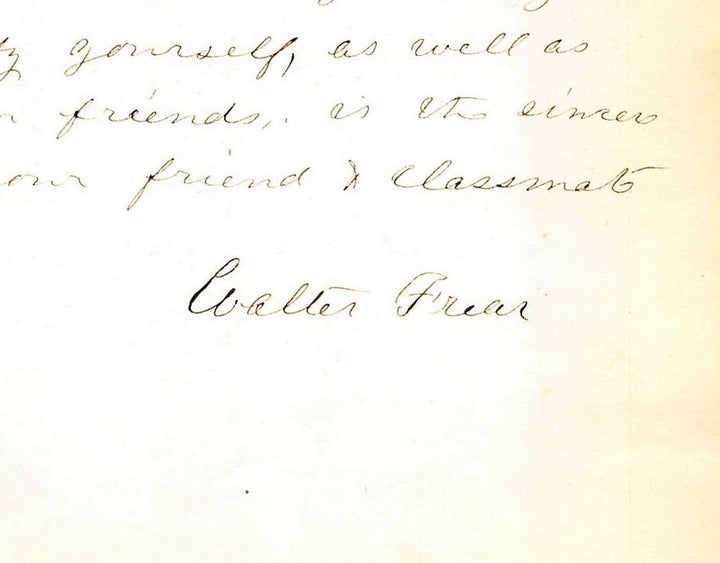 yourself, as well as
friends, is the sincere
our friend & classmate
Walter Frear